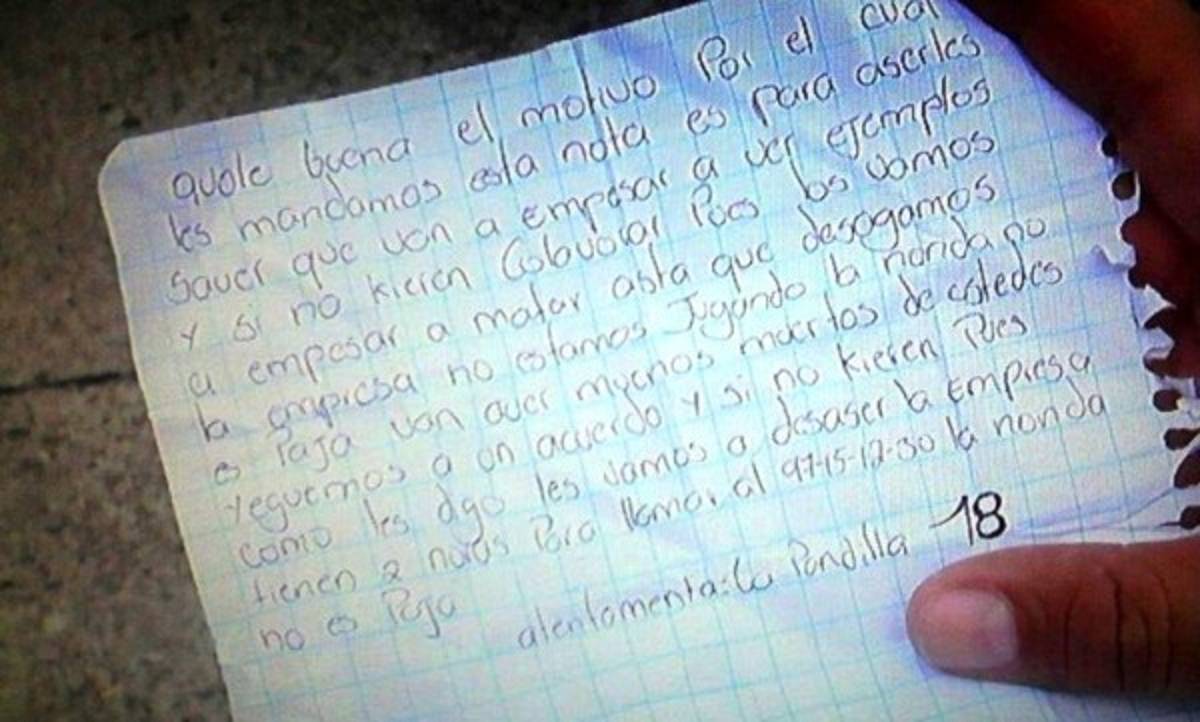 quole buena el motivo Por el cual
les mandamos esta nota es para aserles
saver que van a empesar a ver ejemplos
y si no kieren Colavorar Pues los vamos
a empesar a matar asta que desagamos
la empresa no estamos Jugando la nonda no
es Paja van aver muchos muertos de ustedes
yeguemos a un acuerdo y si no kieren Pues
como les digo les vamos a desaser la Empresa
tienen 2 Para llamar al 97-15-12-30 la nonda
no es Paja
atentamenta: La Pandilla 18